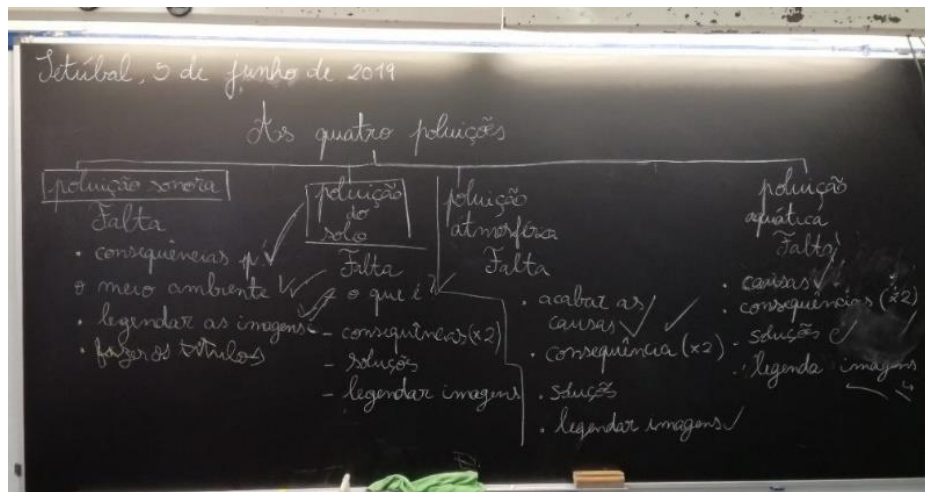 Setúbal, 5 de junho de 2019
As quatro poluições
poluição sonora
Falta
• consequências p.
o meio ambiente
• legendar as imagens
• fazer os títulos
poluição
do
solo
Falta
o que é?
- consequências (x2)
- soluções
- legendar imagens
poluição
atmosféra
Falta
• acabar as
causas
• consequência (x2)
• soluções
• legendar imagens
poluição
aquática
Falta
• causas
• consequências (x2)
- soluções
• legenda imagens